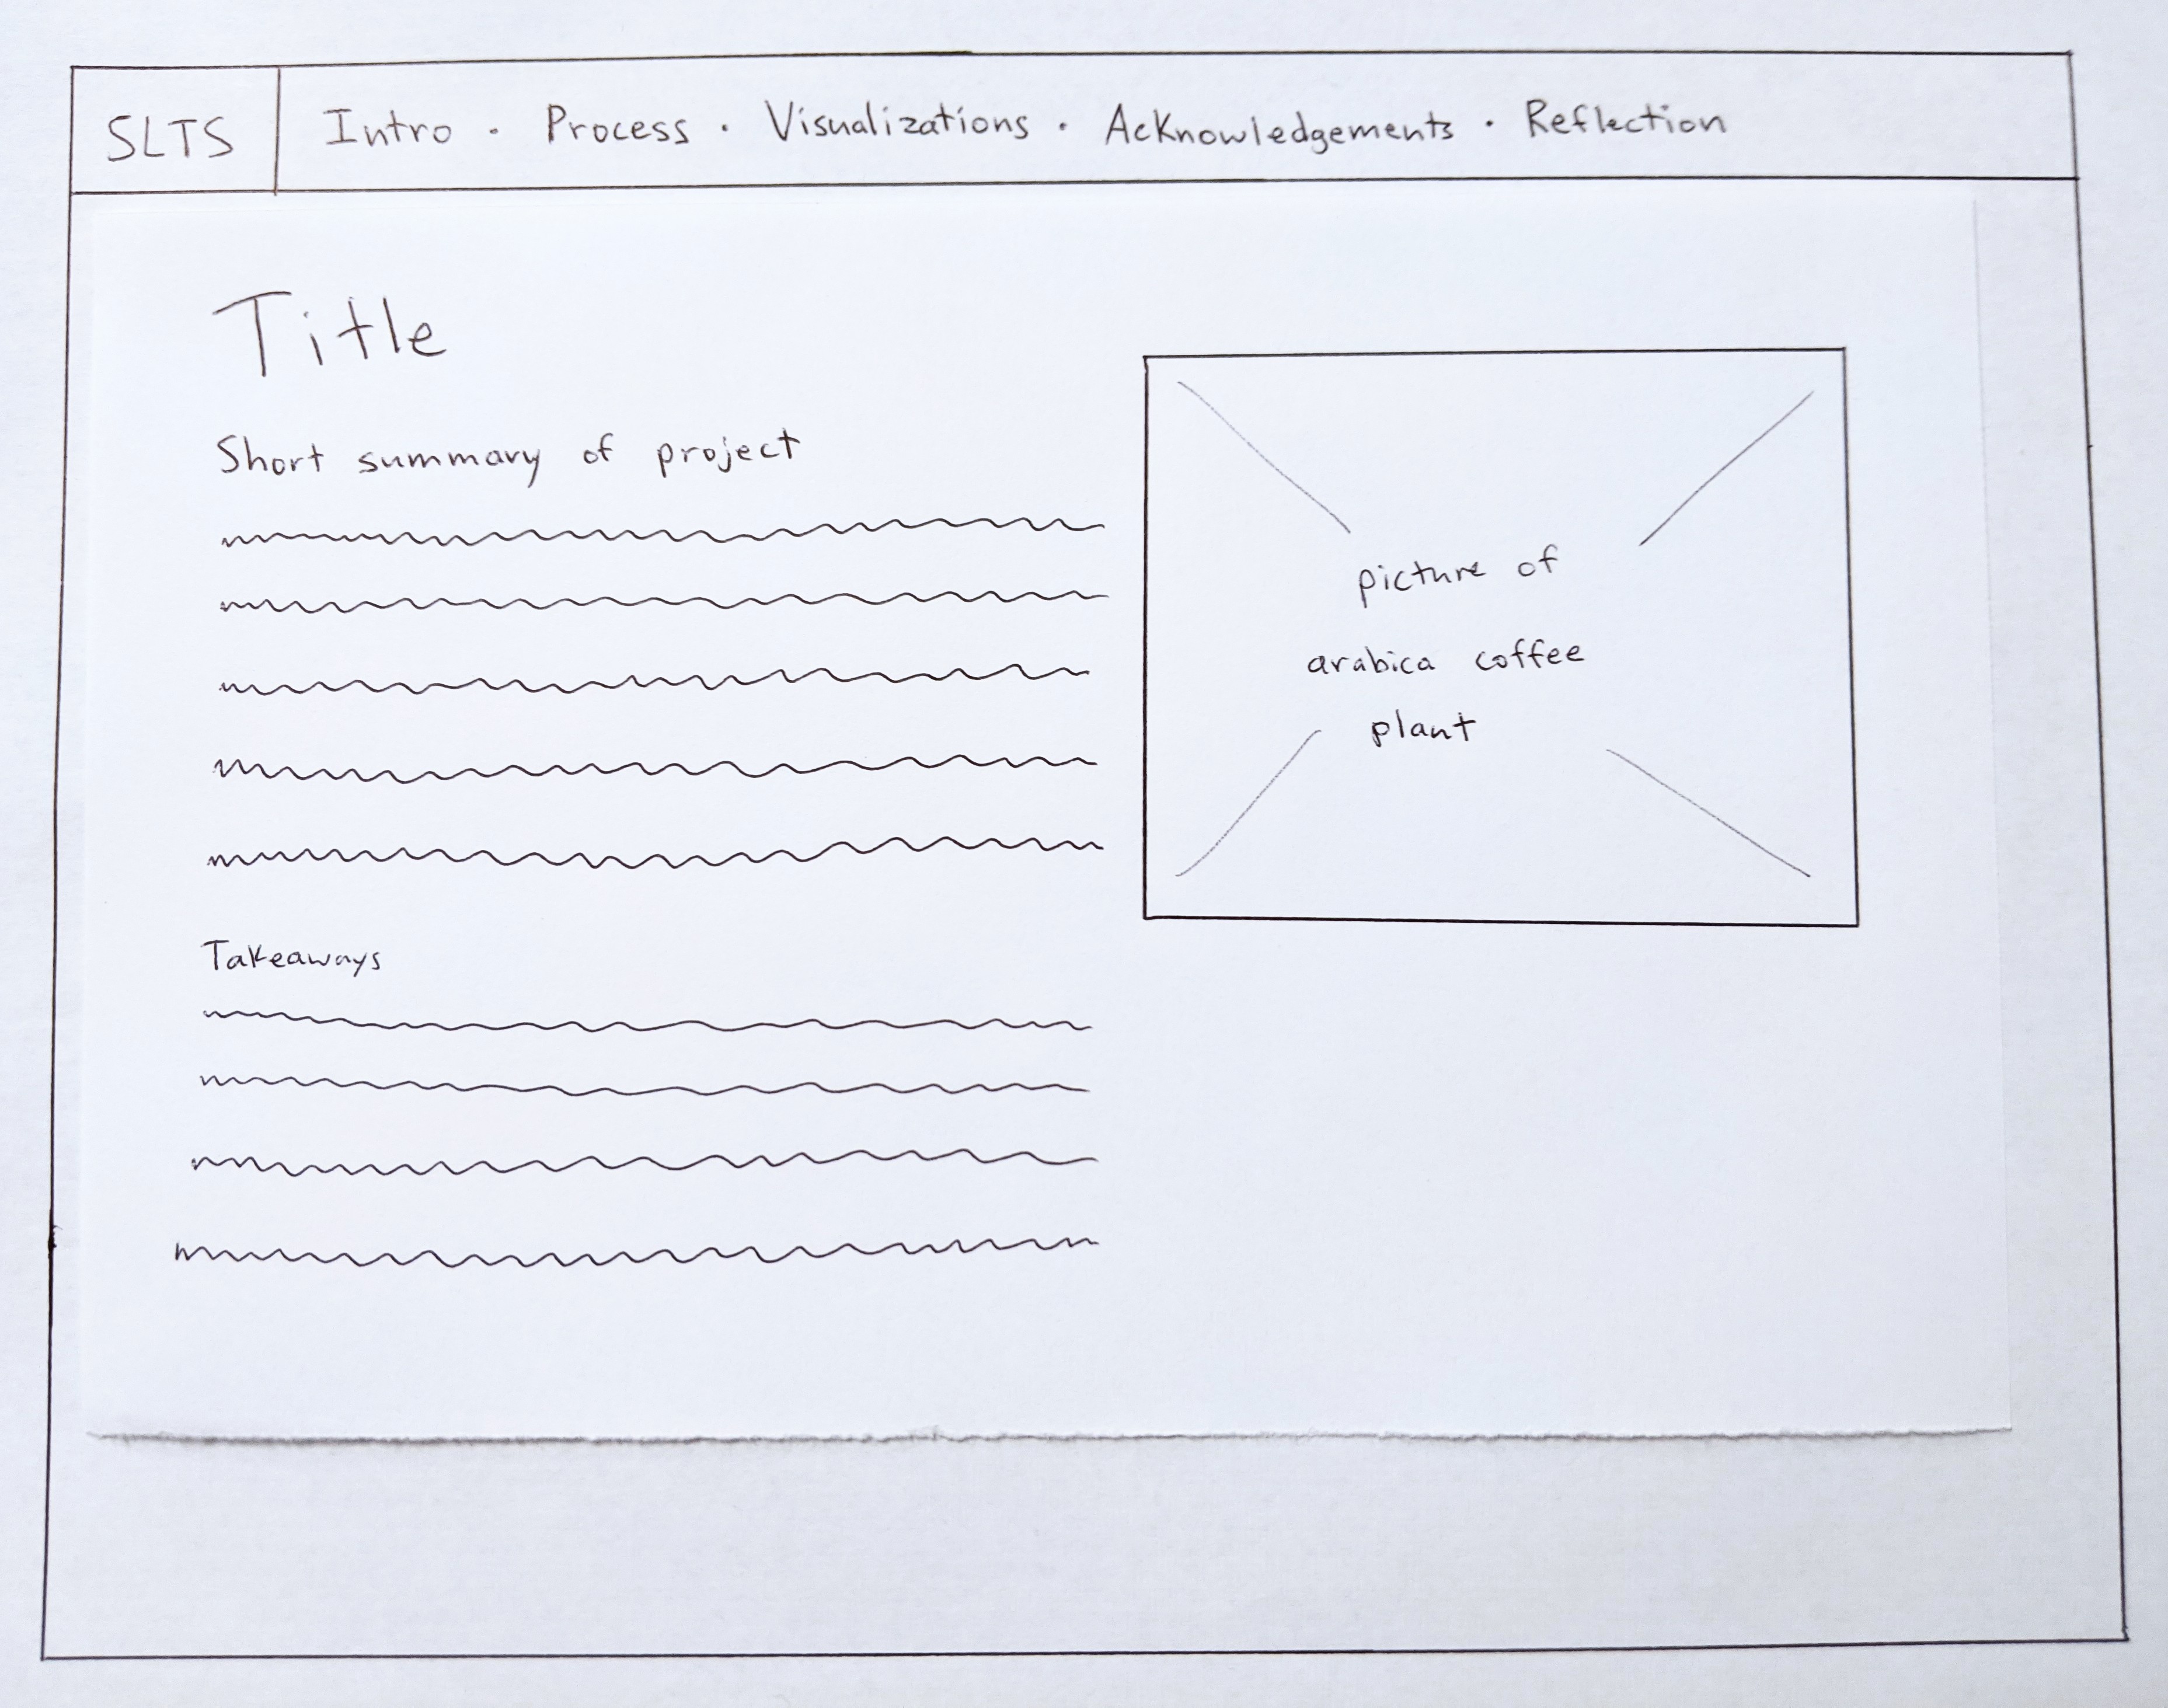 SLTS
Intro · Process · Visualizations · Acknowledgements · Reflection
Title
Short summary of project
Takeaways
picture of
arabica coffee
plant